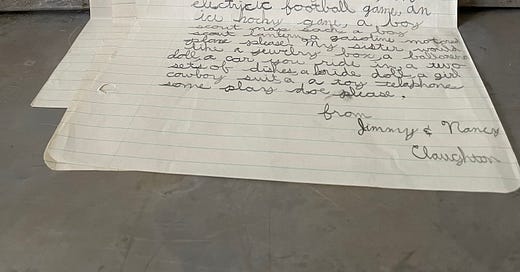 electricic football game, an
ice hocky game, a boy
scout map each a boy
scout lantern, a gasoline motor
plane please. My sister would
like a jewelry box a ballerina
doll a car you ride in a two
sets of dishes a bride doll a girl
cowboy suit a a toy telephone
some play doe please.
from
Jimmy & Nancy
Claughton